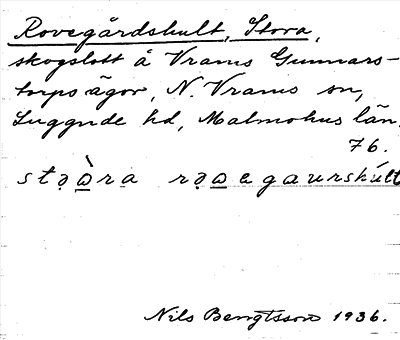 Rovegårdshult, Stora,
skogslott å Vrams Gunnars-
torps ägor, N. Vrams sn,
Luggude hd, Malmöhus län.
76.
stąὼra rąωegaurskúlt
Nils Bengtsson 1936.